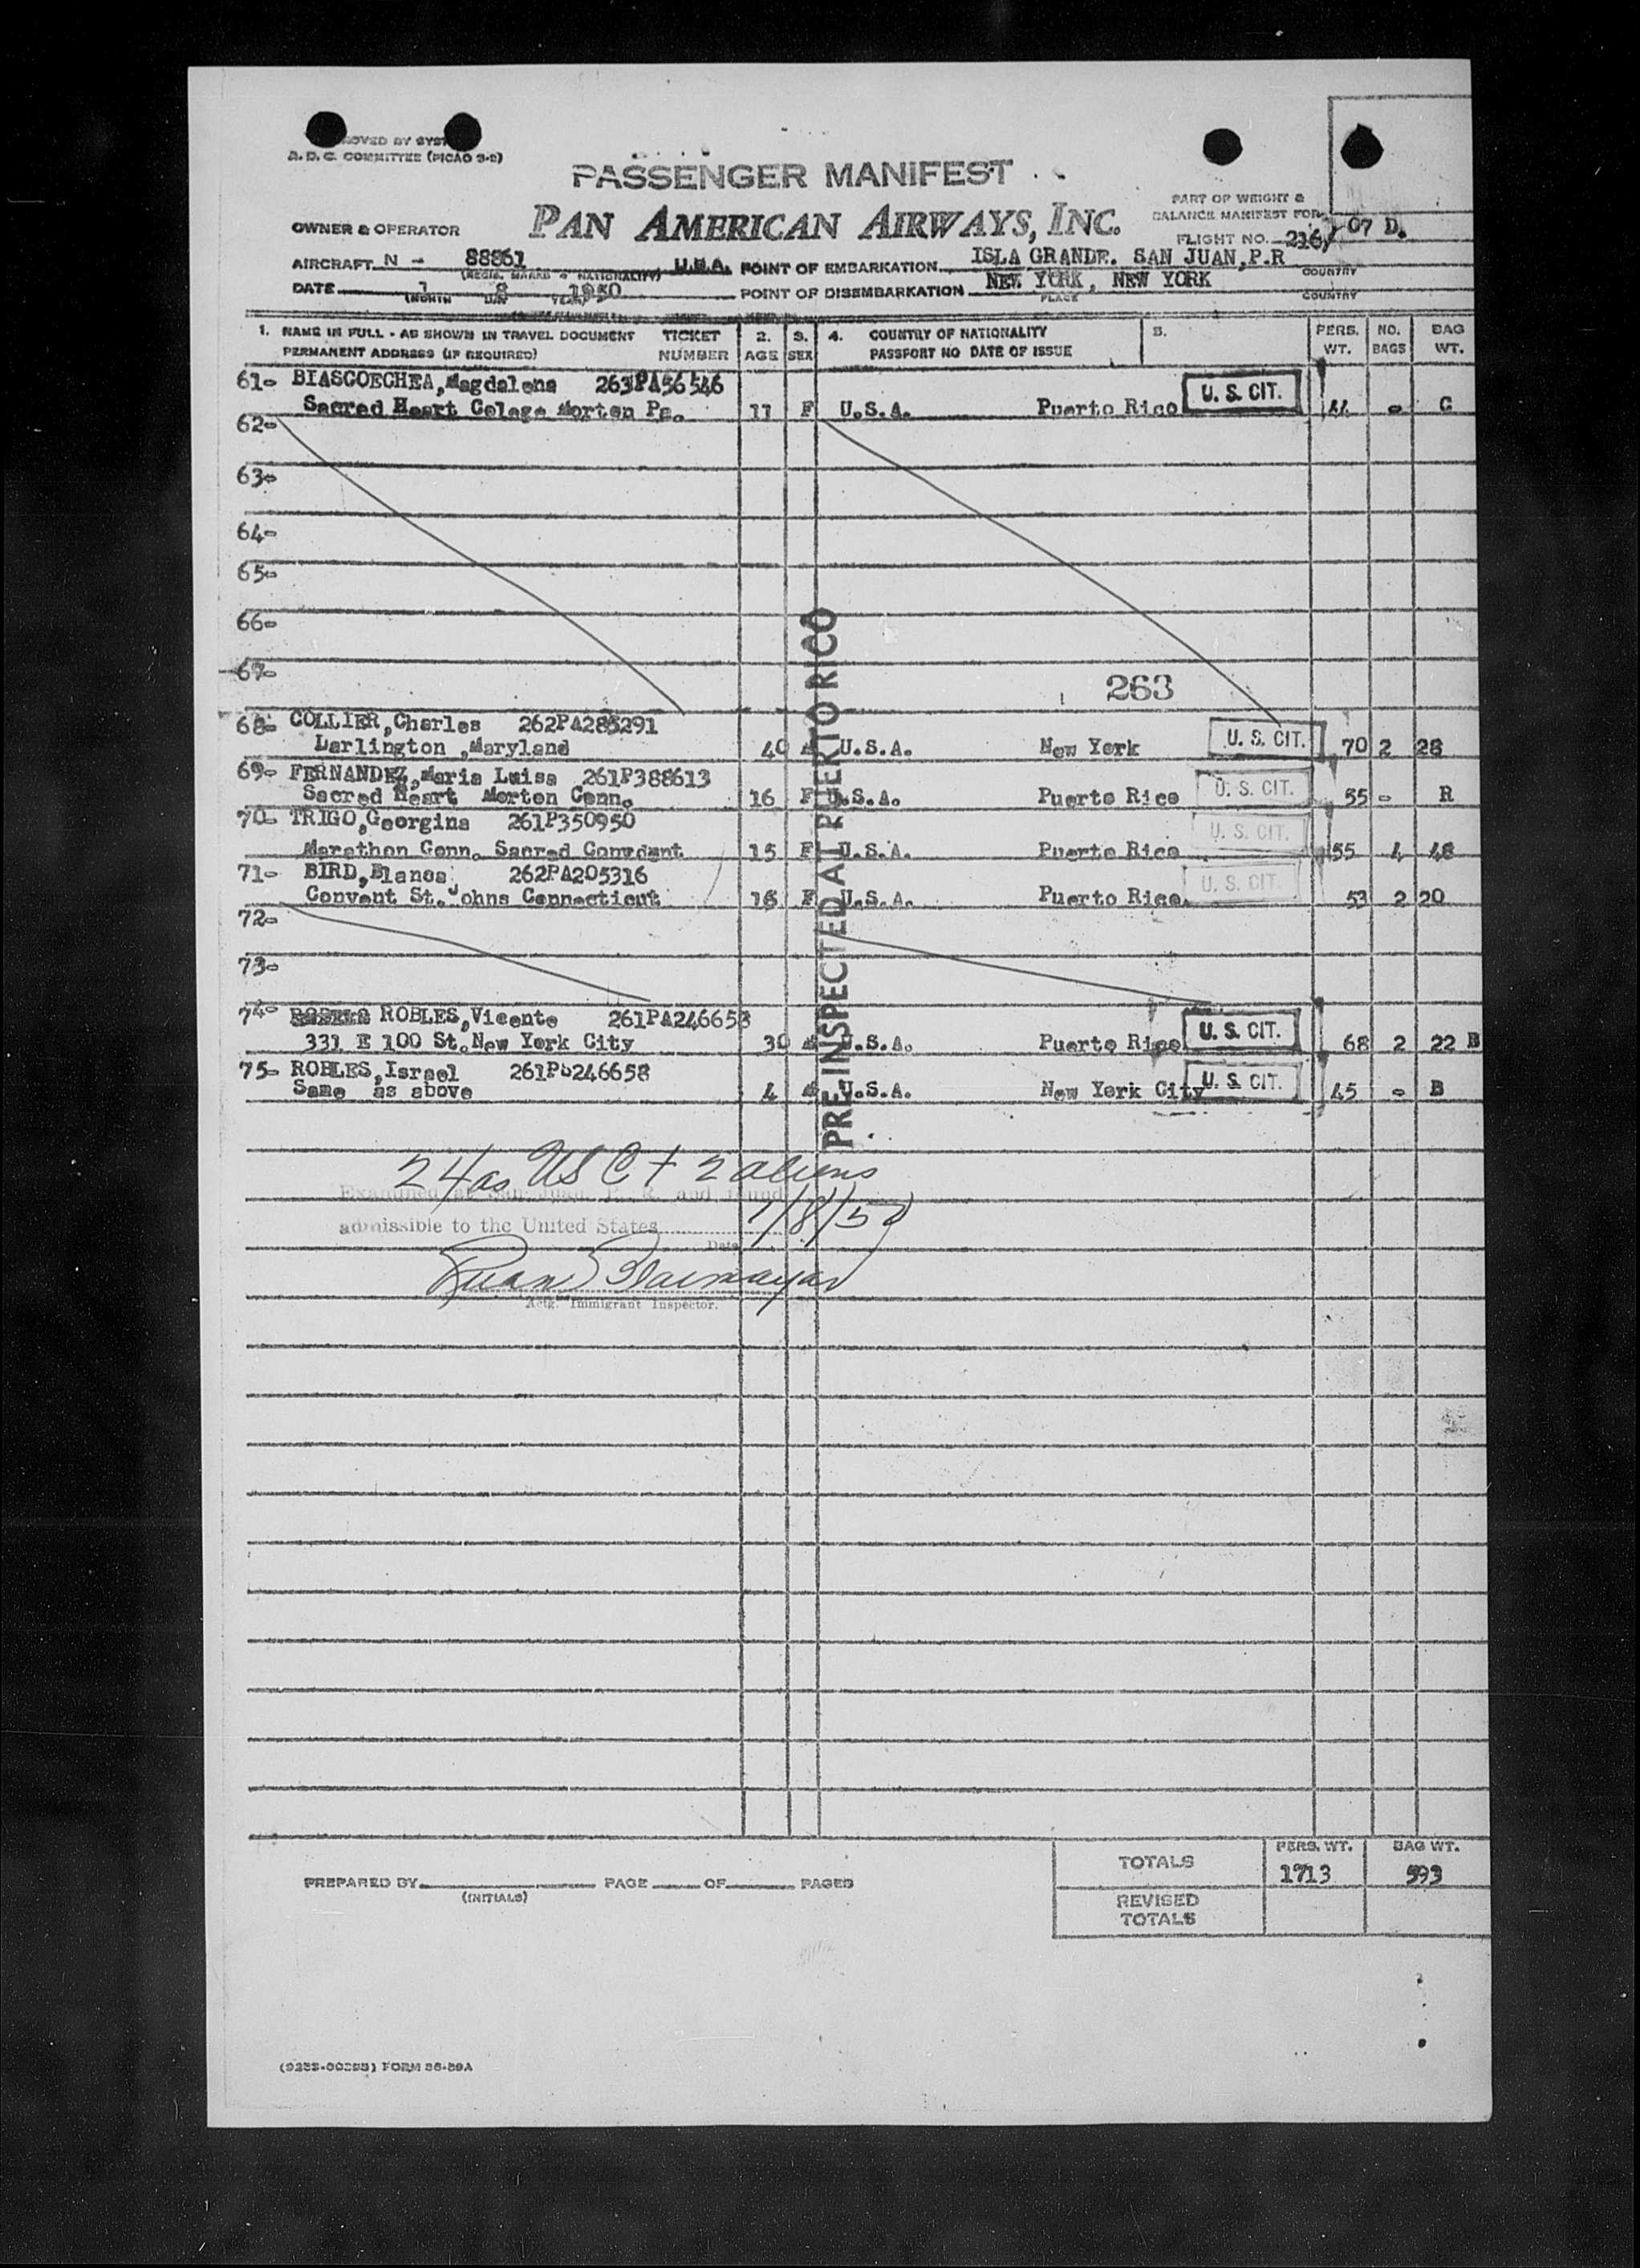 OVED BY SYST
A. D. C. COMMITTEE (PICAO 3-2)
PASSENGER MANIFEST
PART OF WEIGHT &
BALANCE MANIFEST FOR
OWNER & OPERATOR PAN AMERICAN AIRWAYS, INC. FLIGHT NO. 216/ 07 D.
AIRCRAFT N - 88861 U.S.A. POINT OF EMBARKATION ISLA GRANDE. SAN JUAN,P.R
(REGIS. MARKS & NATIONALITY) COUNTRY
DATE 1 8 1950 POINT OF DISEMBARKATION NEW YORK, NEW YORK
(MONTH DAY YEAR) PLACE COUNTRY
1. NAME IN FULL - AS SHOWN IN TRAVEL DOCUMENT TICKET 2. 3. 4. COUNTRY OF NATIONALITY 5. PERS. NO. BAG
PERMANENT ADDRESS (IF REQUIRED) NUMBER AGE SEX PASSPORT NO DATE OF ISSUE WT. BAGS WT.
61- BIASCOECHEA,Magdalena 263PA56546 U. S. CIT.
Sacred Heart Colege Morton Pa. 11 F U.S.A. Puerto Rico 44 - C
62-
63-
64-
65-
66-
67-
263
68- COLLIER,Charles 262PA285291
Darlington ,Maryland 40 M U.S.A. New York U. S. CIT. 70 2 28
69- FERNANDEZ,Maria Luisa 261P388613
Sacred Heart Morton Conn. 16 F U.S.A. Puerto Rico U. S. CIT. 55 - R
70- TRIGO,Georgina 261P350950 U. S. CIT.
Marathon Conn. Sacred Convdent 15 F U.S.A. Puerto Rico 55 4 48
71- BIRD,Blanca 262PA205316 U. S. CIT.
Convent St.Johns Connecticut 16 F U.S.A. Puerto Rico. 53 2 20
72-
73-
74- ROBLES,Vicente 261PA246658 U. S. CIT.
331 E 100 St.New York City 30 M U.S.A. Puerto Rico 68 2 22 B
75- ROBLES,Israel 261Pb246658 U. S. CIT.
Same as above 4 M U.S.A. New York City 45 - B
PRE-INSPECTED AT PUERTO RICO
24 as US C + 2 aliens
Examined at San Juan, P. R. and found
admissible to the United States 1/8/50
Date
Juan
Actg. Immigrant Inspector.
PERS. WT. BAG WT.
TOTALS 1713 593
PREPARED BY PAGE OF PAGES
(INITIALS)
REVISED
TOTALS
FORM 36-89A